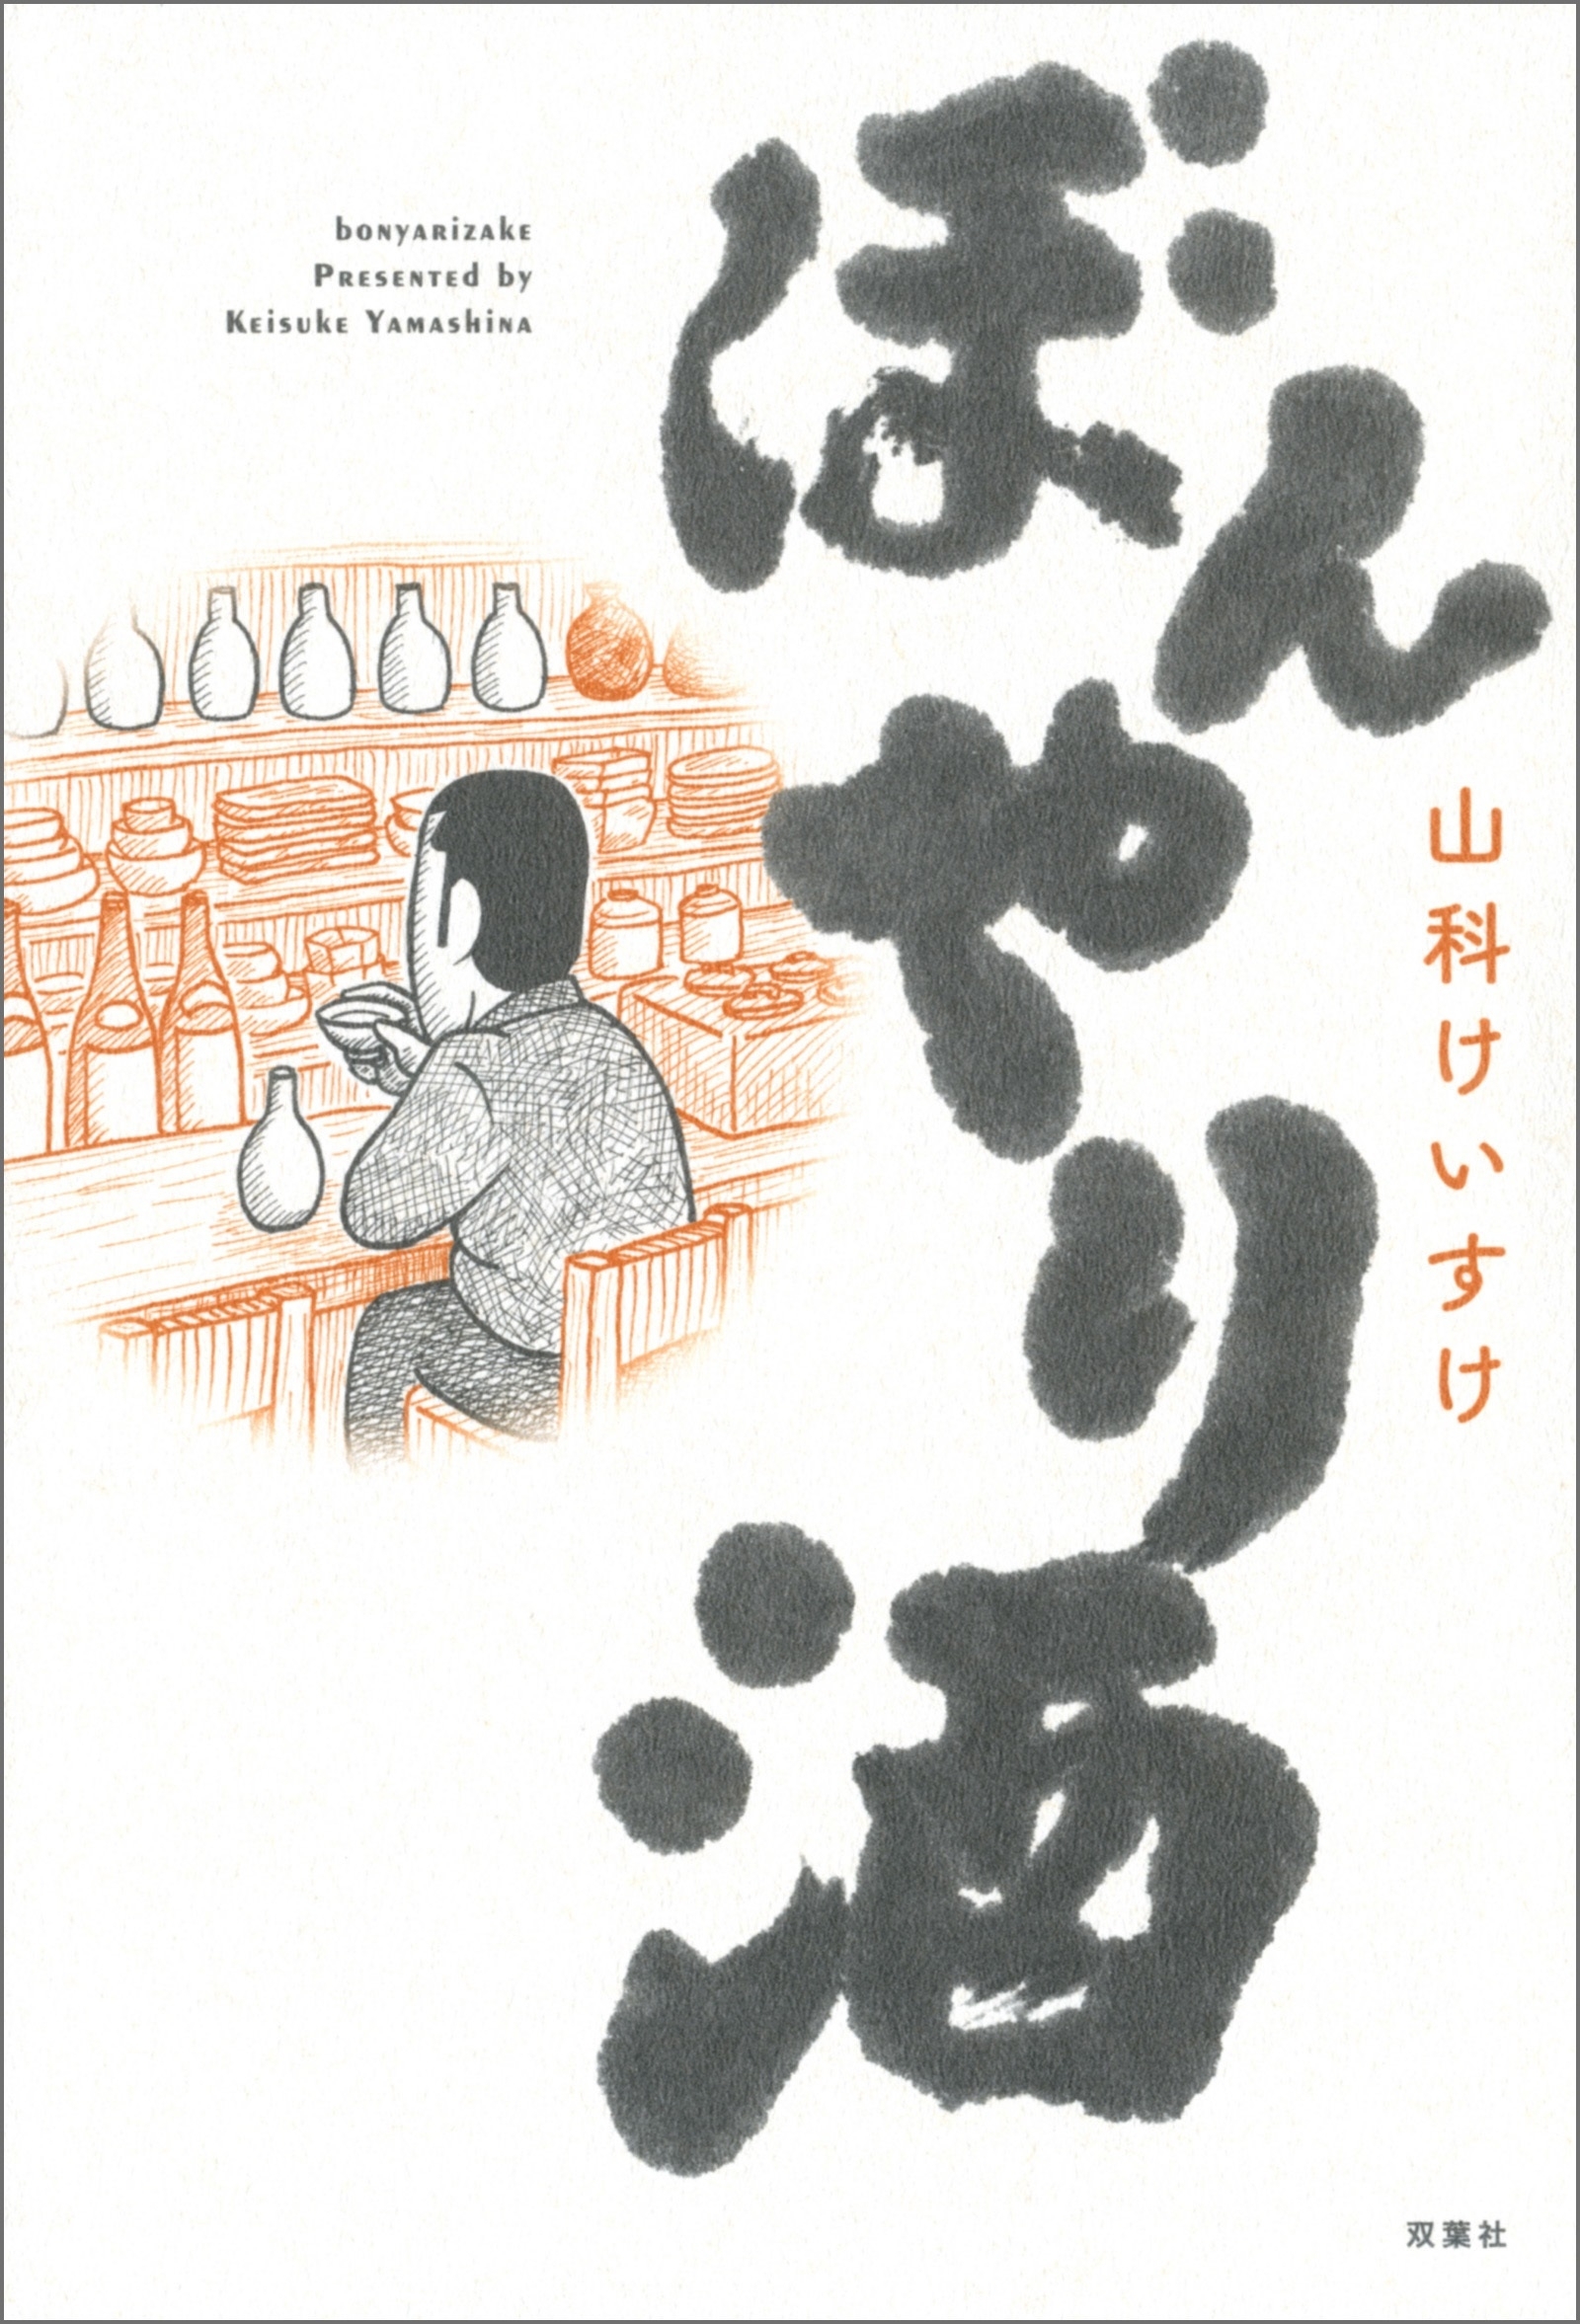 ぼんやり酒
山科けいすけ
bonyarizake
Presented by
Keisuke Yamashina
双葉社